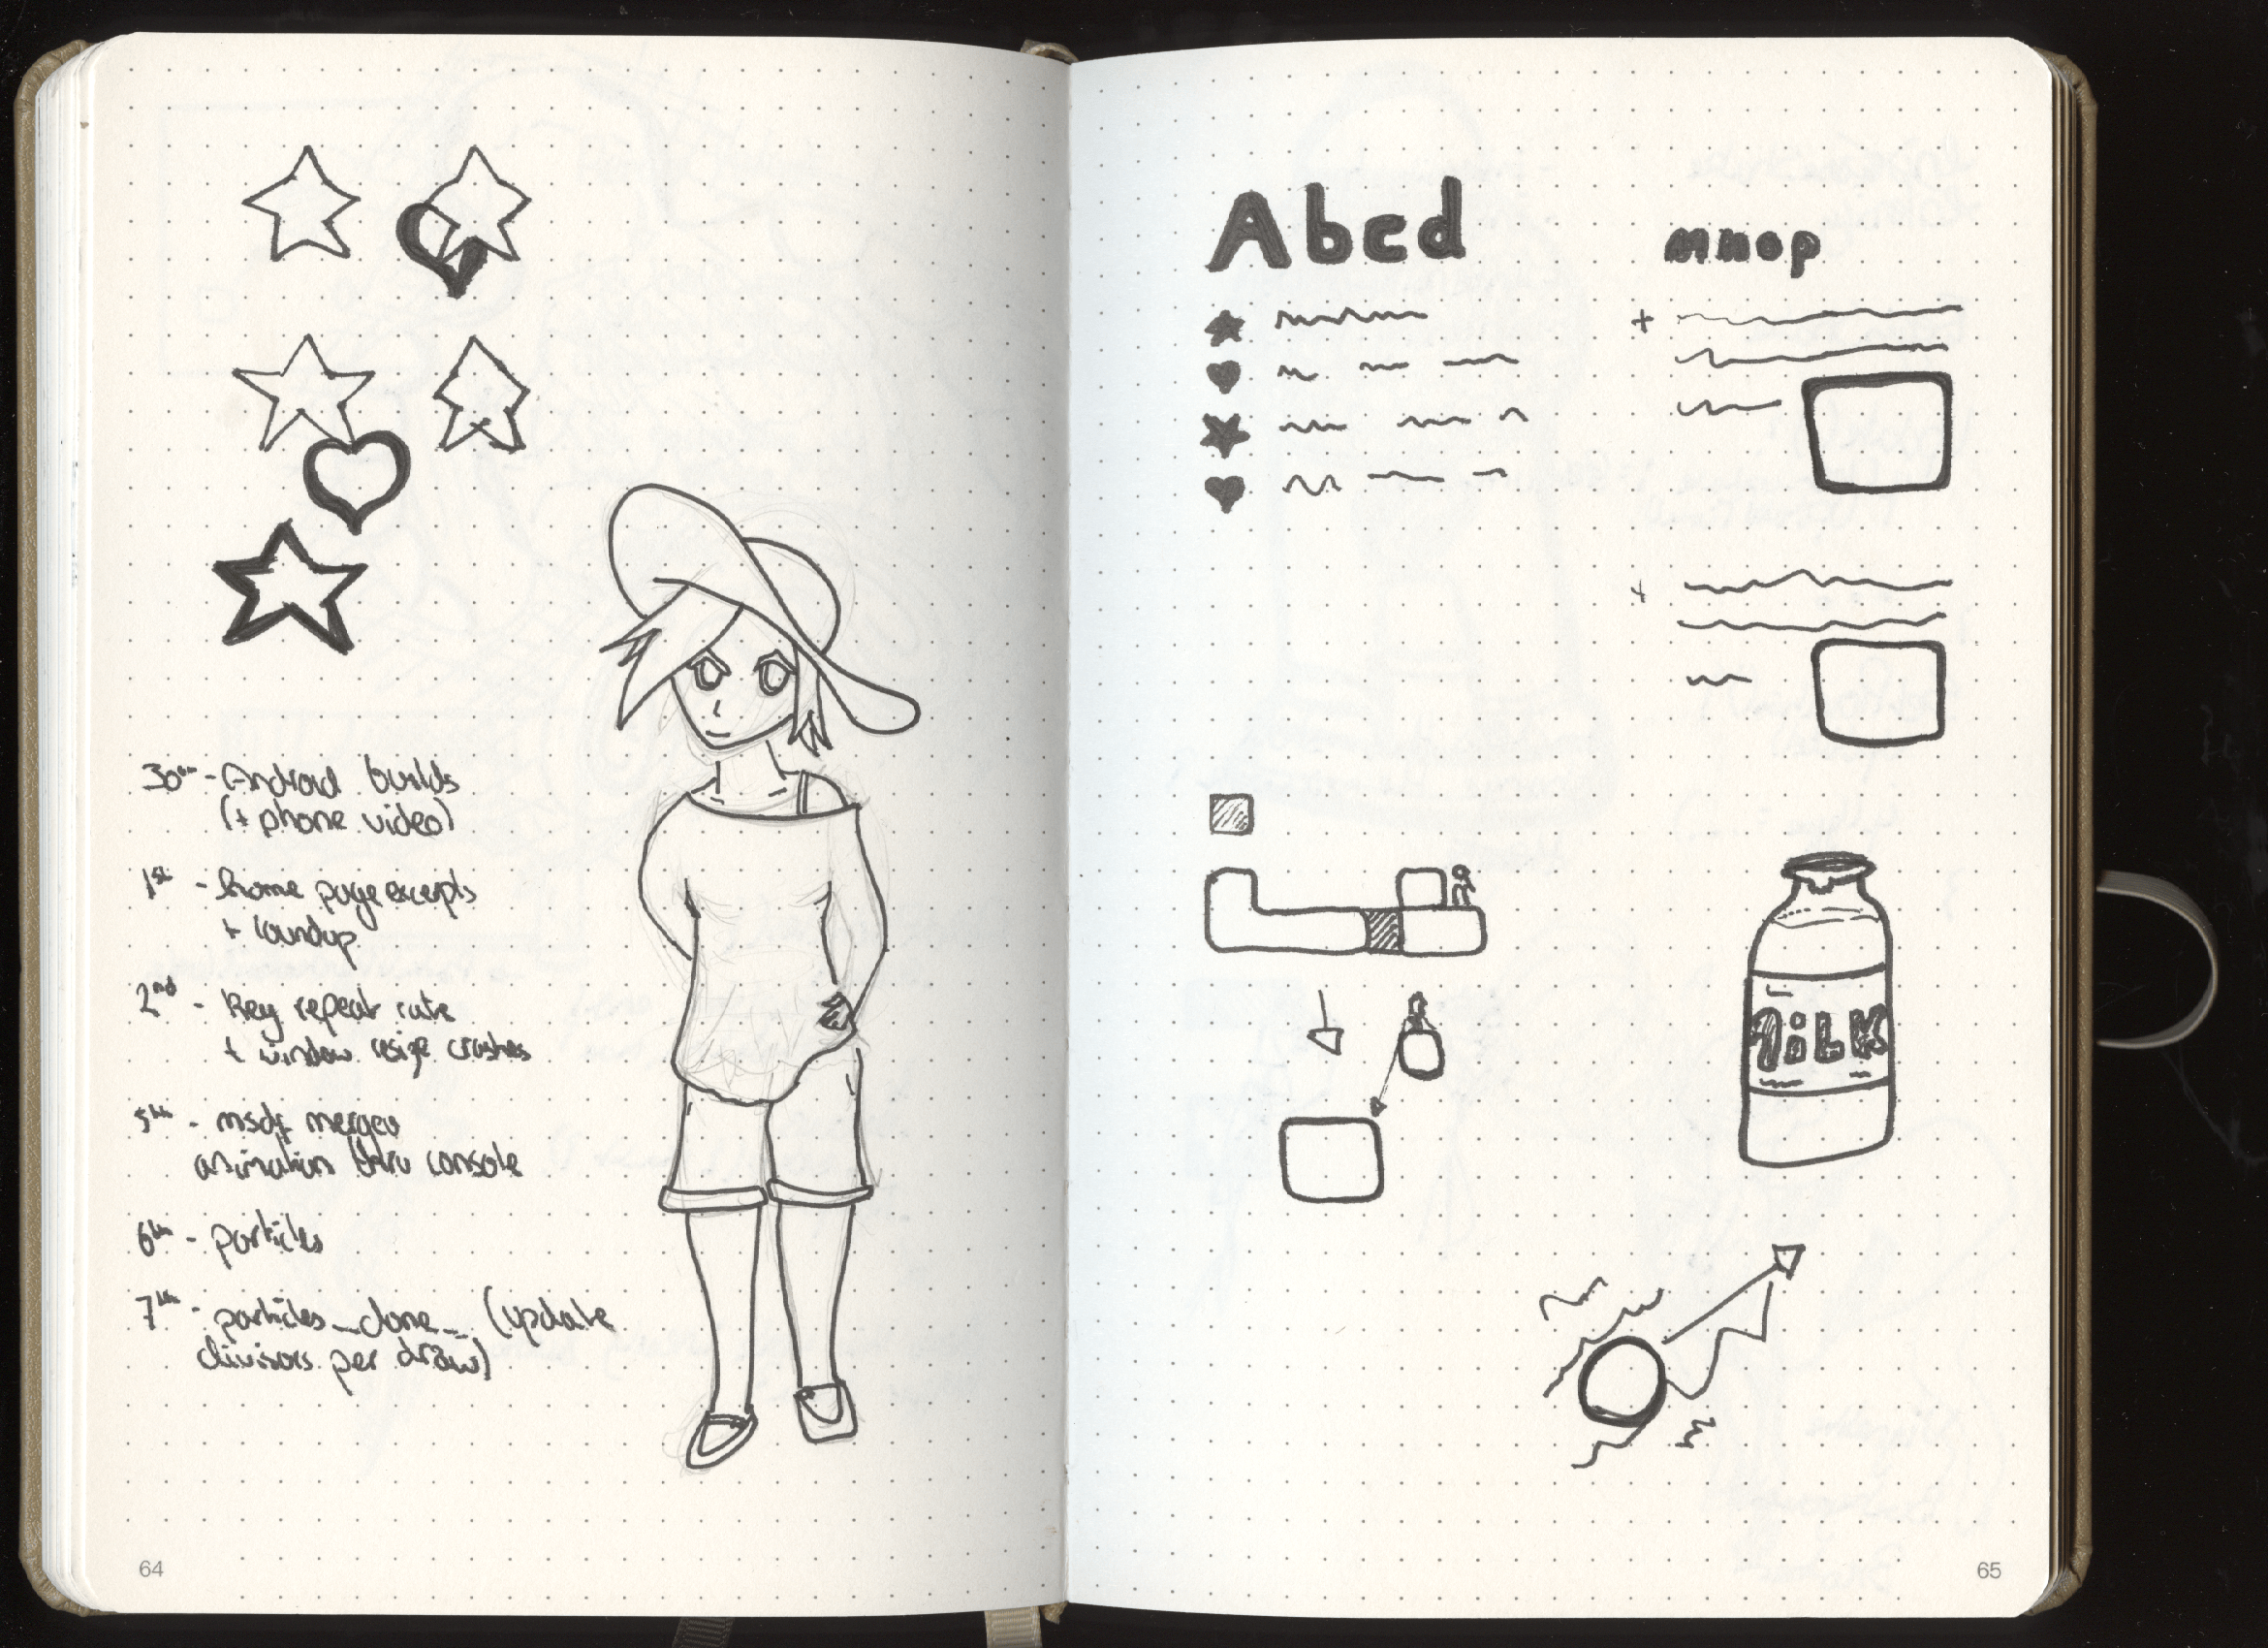 30th - Android builds
(+ phone video)
1st - home page excerpts
+ roundup
2nd - key repeat rate
+ window resize crashes
5th - msdf merged
animation thru console
6th - particles
7th - particles _done_ (update
divisors per draw)
64
Abcd
mnop
MiLK
65